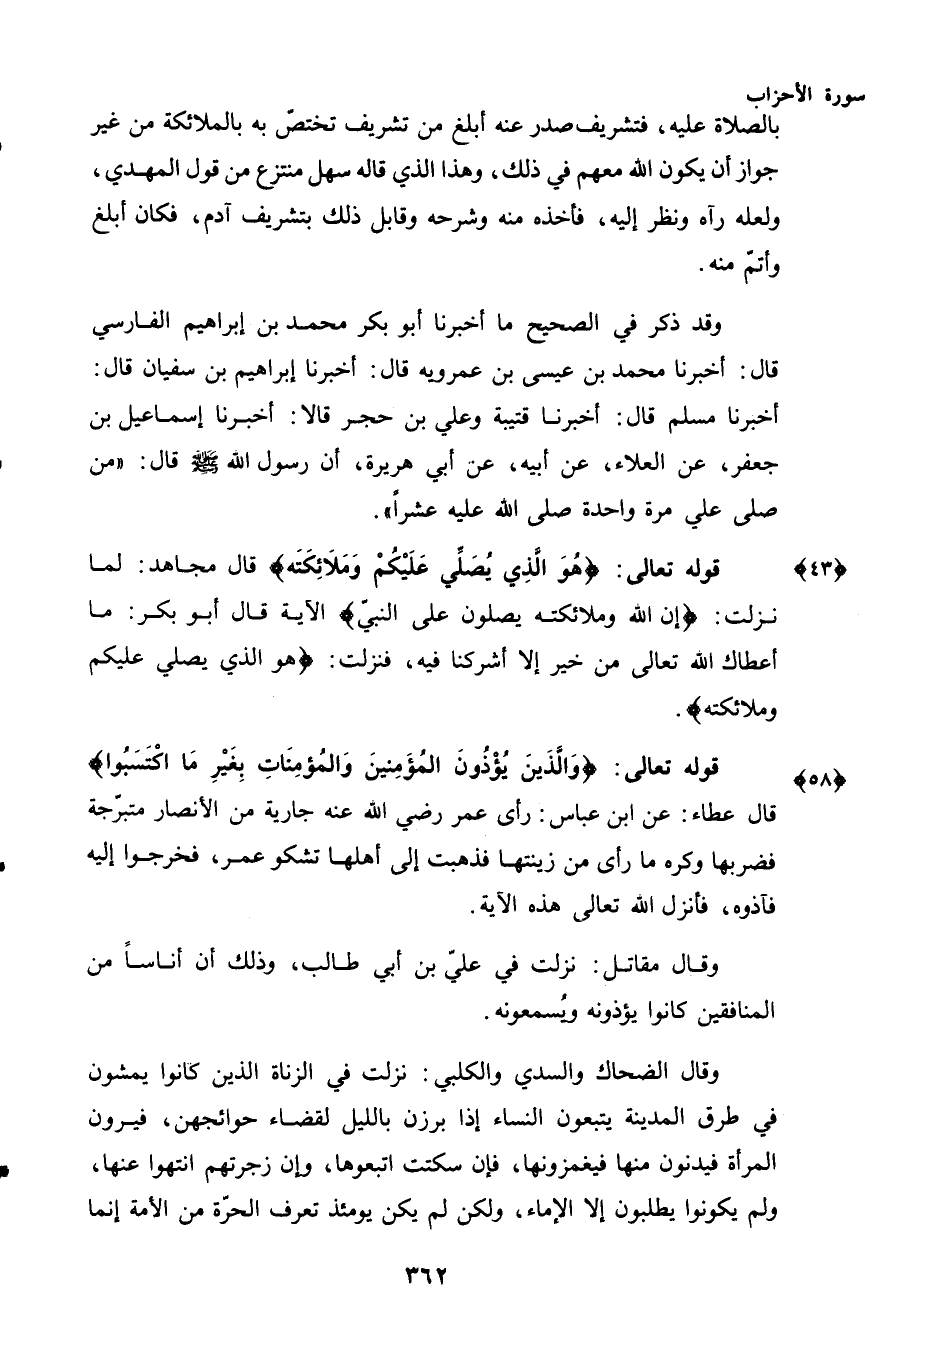 سورة الأحزاب
بالصلاة عليه، فتشريف صدر عنه أبلغ من تشريف تختصّ به بالملائكة من غير
جواز أن يكون الله معهم في ذلك، وهذا الذي قاله سهل منتزع من قول المهدي،
ولعله رآه ونظر إليه، فأخذه منه وشرحه وقابل ذلك بتشريف آدم، فكان أبلغ
وأتمّ منه.
وقد ذكر في الصحيح ما أخبرنا أبو بكر محمد بن إبراهيم الفارسي
قال: أخبرنا محمد بن عيسى بن عمرويه قال: أخبرنا إبراهيم بن سفيان قال:
أخبرنا مسلم قال: أخبرنا قتيبة وعلي بن حجر قالا: أخبرنا إسماعيل بن
جعفر، عن العلاء، عن أبيه، عن أبي هريرة، أن رسول الله ﷺ قال: «من
صلى علي مرة واحدة صلى الله عليه عشراً».
﴿٤٣﴾ قوله تعالى: ﴿هُوَ الَّذِي يُصَلِّي عَلَيْكُمْ وَمَلَائِكَتَه﴾ قال مجاهد: لما
نزلت: ﴿إن الله وملائكته يصلون على النبيّ﴾ الآية قال أبو بكر: ما
أعطاك الله تعالى من خير إلا أشركنا فيه، فنزلت: ﴿هو الذي يصلي عليكم
وملائكته﴾.
﴿٥٨﴾ قوله تعالى: ﴿وَالَّذينَ يُؤْذُونَ المُؤمِنينَ وَالمُؤمِنَاتِ بِغَيْرِ مَا اكْتَسَبُوا﴾
قال عطاء: عن ابن عباس: رأى عمر رضي الله عنه جارية من الأنصار متبرّجة
فضربها وكره ما رأى من زينتها فذهبت إلى أهلها تشكو عمر، فخرجوا إليه
فآذوه، فأنزل الله تعالى هذه الآية.
وقال مقاتل: نزلت في عليّ بن أبي طالب، وذلك أن أناساً من
المنافقين كانوا يؤذونه ويُسمعونه.
وقال الضحاك والسدي والكلبي: نزلت في الزناة الذين كانوا يمشون
في طرق المدينة يتبعون النساء إذا برزن بالليل لقضاء حوائجهن، فيرون
المرأة فيدنون منها فيغمزونها، فإن سكتت اتبعوها، وإن زجرتهم انتهوا عنها،
ولم يكونوا يطلبون إلا الإماء، ولكن لم يكن يومئذ تعرف الحرّة من الأمة إنما
٣٦٢